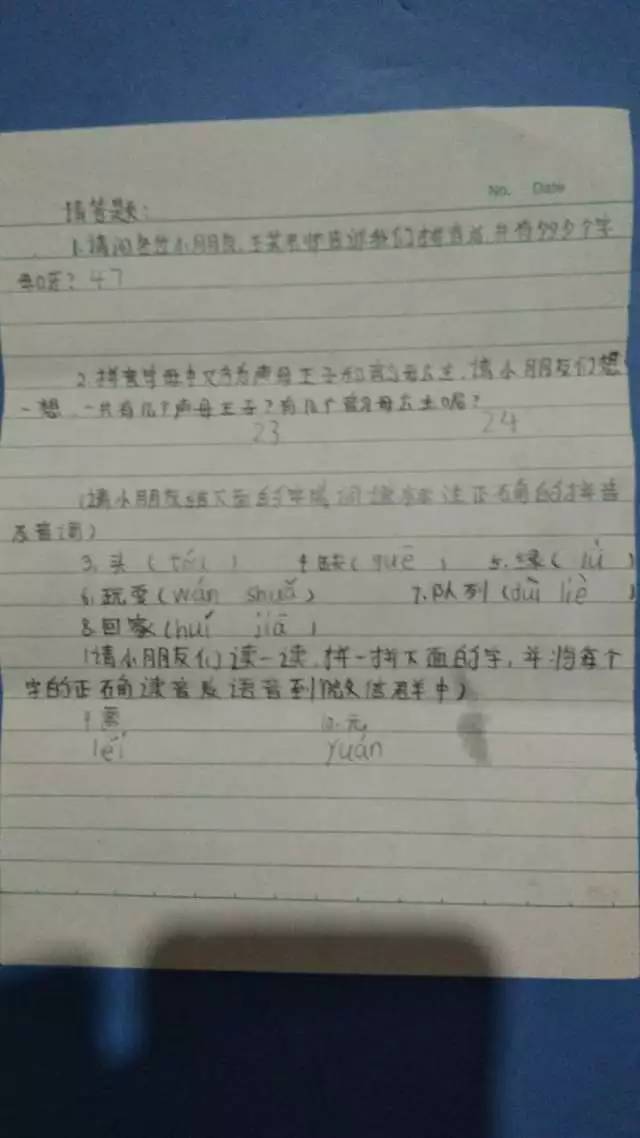 No. Date
请答题:
1.请问各位小朋友,王芳老师告诉我们拼音总共有多少个字
母呢?47
2.拼音字母中又分为声母王子和韵母公主,请小朋友们想
一想,一共有几个声母王子?有几个韵母公主呢?
23 24
(请小朋友给下面的字或词 注正确的拼音
及音词)
3.头(tóu) 4.缺(quē) 5.绿(lǜ)
6.玩耍(wán shuǎ) 7.队列(duì liè)
8.回家(huí jiā)
(请小朋友们读一读,拼一拼下面的字,并将每个
字的正确读音发语音到 微信群中)
9.雷 10.元
léi yuán